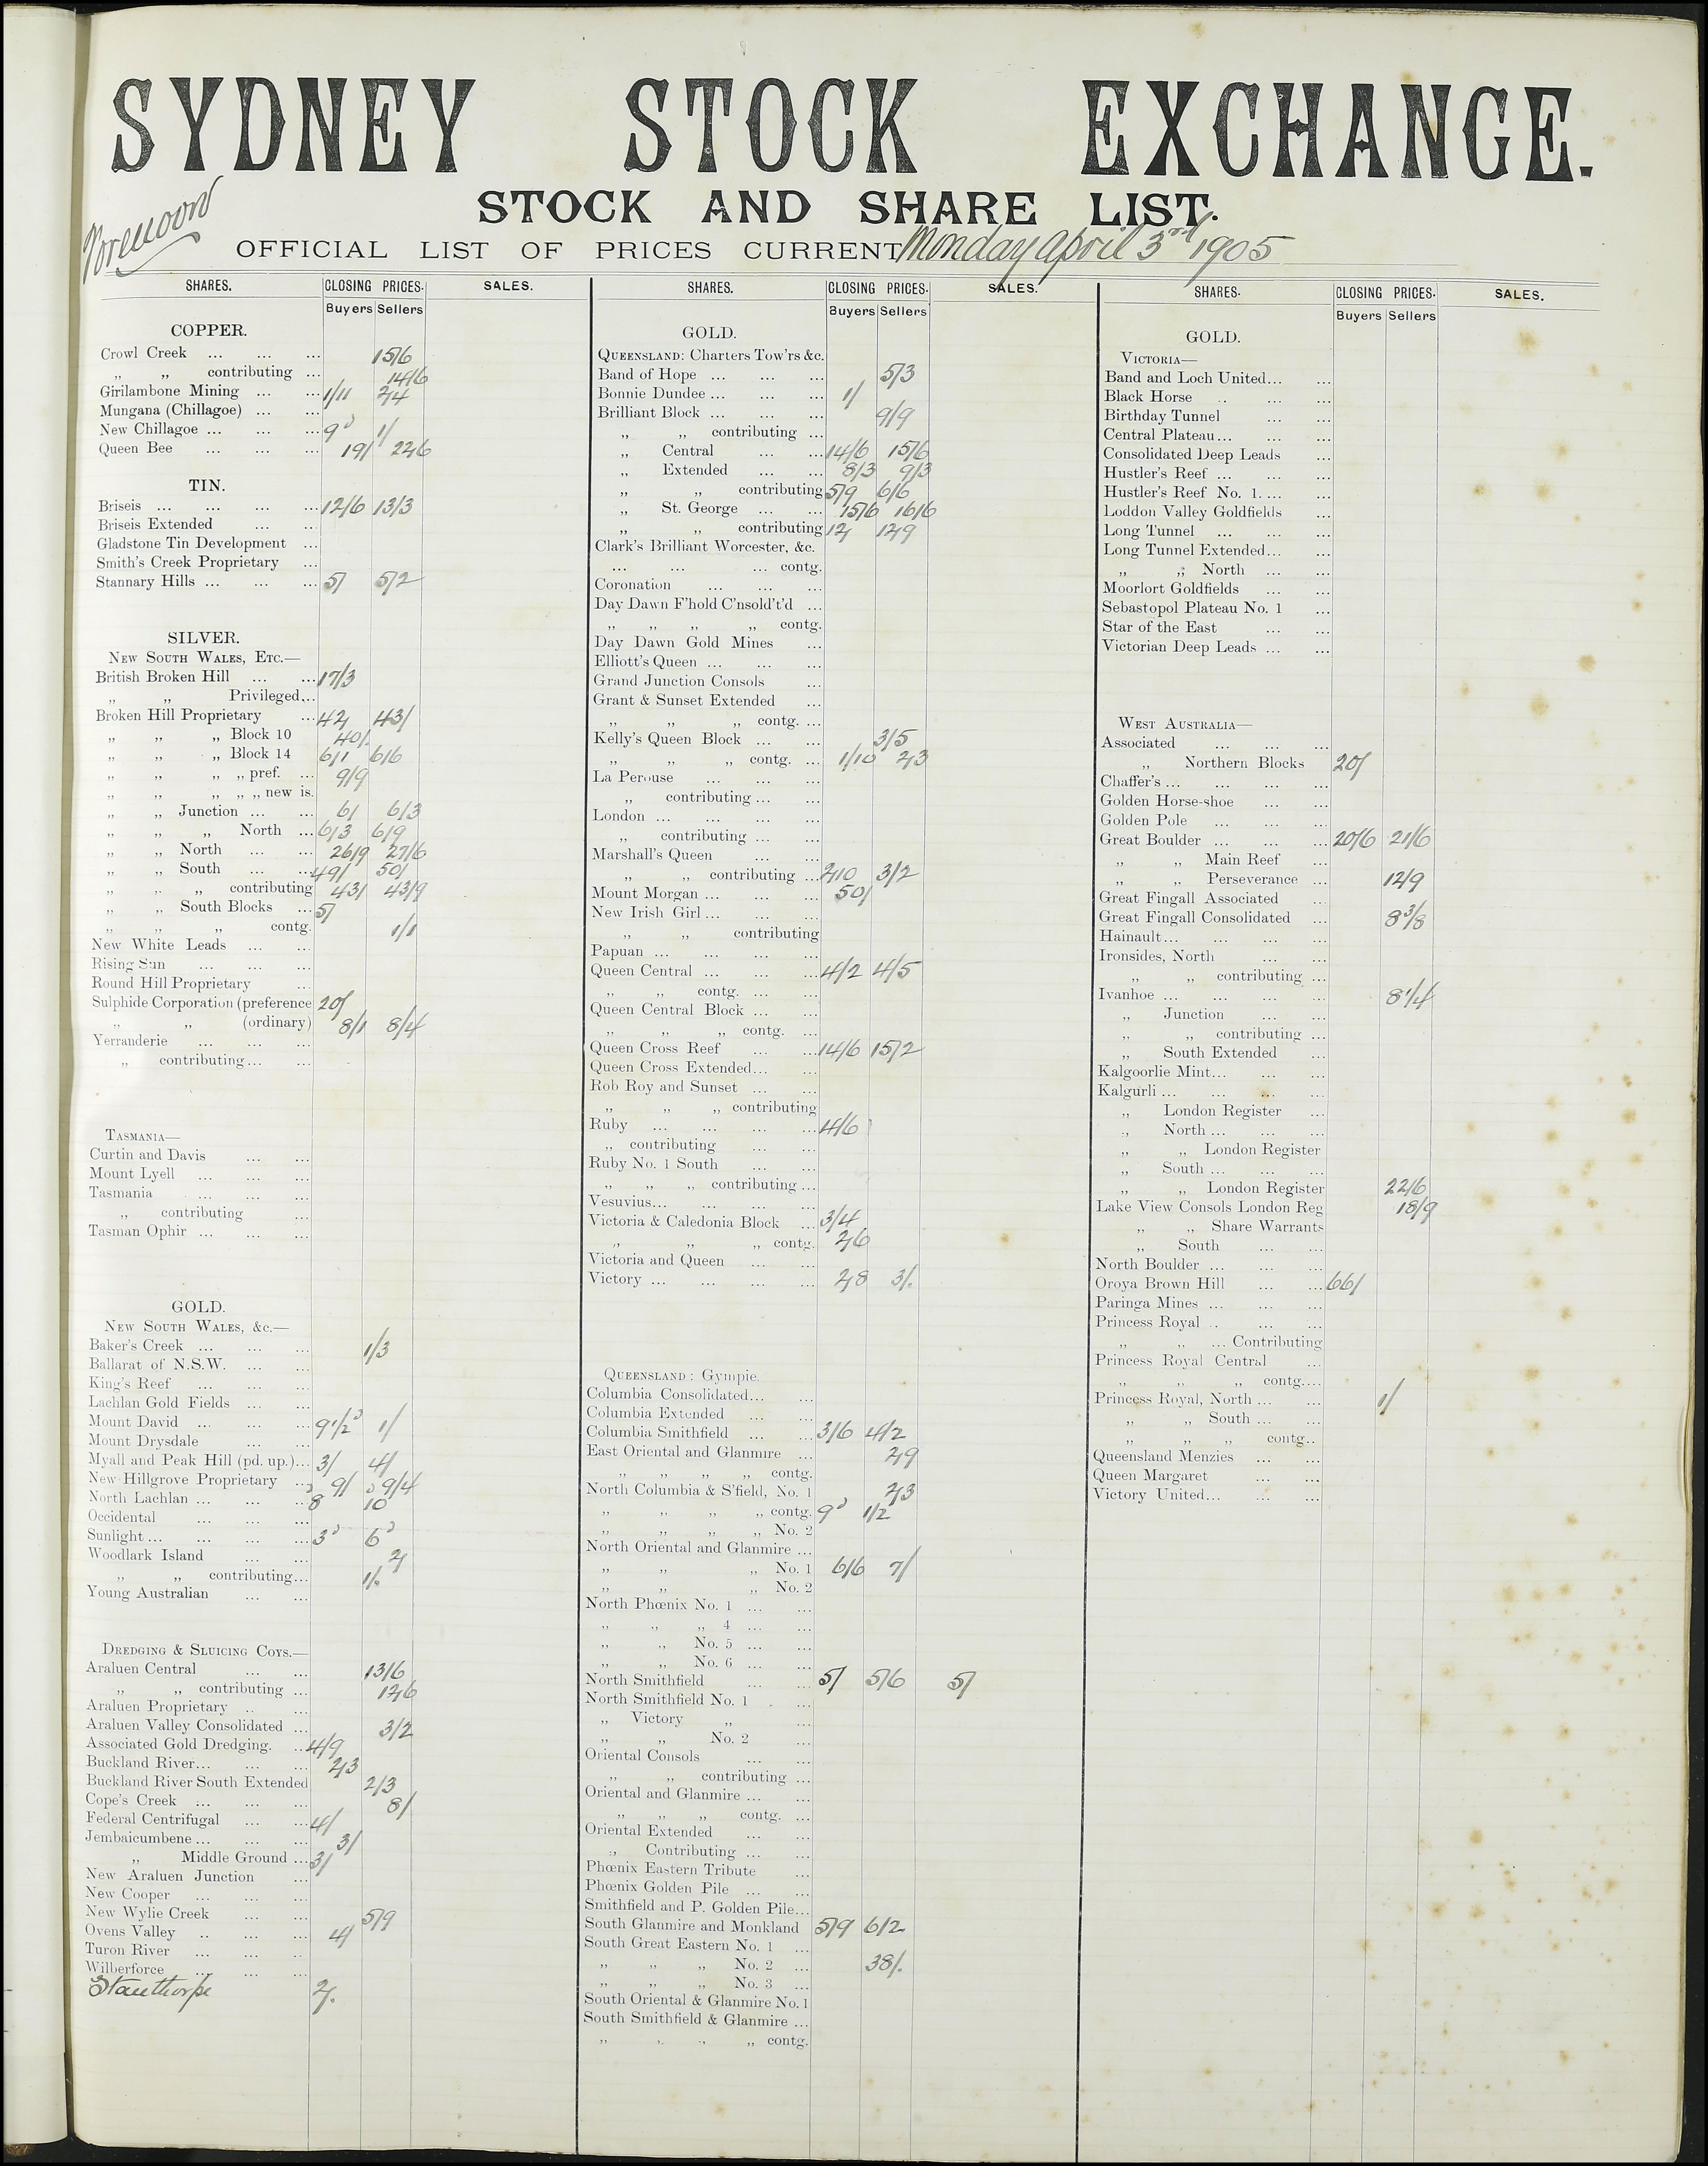 SYDNEY STOCK EXCHANGE.
STOCK AND SHARE LIST.
Forenoon
OFFICIAL LIST OF PRICES CURRENT Monday April 3rd 1905
SHARES. CLOSING PRICES. SALES.
Buyers Sellers
COPPER.
Crowl Creek ... ... ... 15/6
„ „ contributing ... 14/6
Girilambone Mining ... ... 1/11 2/4
Mungana (Chillagoe) ... ...
New Chillagoe ... ... ... 9d 1/
Queen Bee ... ... ... 19/ 22/6
TIN.
Briseis ... ... ... ... 12/6 13/3
Briseis Extended ... ...
Gladstone Tin Development ...
Smith's Creek Proprietary ...
Stannary Hills ... ... ... 5/ 5/2
SILVER.
NEW SOUTH WALES, ETC.—
British Broken Hill ... ... 17/3
„ „ Privileged...
Broken Hill Proprietary ... 42/ 43/
„ „ „ Block 10 40/.
„ „ „ Block 14 6/1 6/6
„ „ „ „ pref. ... 9/9
„ „ „ „ „ new is.
„ „ Junction ... ... 6/ 6/3
„ „ „ North ... 6/3 6/9
„ „ North ... ... 26/9 27/6
„ „ South ... ... 49/ 50/
„ „ „ contributing 43/ 43/9
„ „ South Blocks ... 5/
„ „ „ contg. 1/1
New White Leads ... ...
Rising Sun ... ... ...
Round Hill Proprietary ...
Sulphide Corporation (preference 20/
„ „ (ordinary) 8/1 8/4
Yerranderie ... ... ...
„ contributing ... ...
TASMANIA—
Curtin and Davis ... ...
Mount Lyell ... ... ...
Tasmania ... ... ...
„ contributing ...
Tasman Ophir ... ... ...
GOLD.
NEW SOUTH WALES, &c.—
Baker's Creek ... ... ... 1/3
Ballarat of N.S.W. ... ...
King's Reef ... ... ...
Lachlan Gold Fields ... ...
Mount David ... ... ... 9 1/2d 1/
Mount Drysdale ... ...
Myall and Peak Hill (pd. up.)... 3/ 4/
New Hillgrove Proprietary ... 9/ 9/4
North Lachlan ... ... ... 8d 10d
Occidental ... ... ...
Sunlight ... ... ... ... 3d 6d
Woodlark Island ... ... 2/
„ „ contributing... 1/.
Young Australian ... ...
DREDGING & SLUICING COYS.—
Araluen Central ... ... 13/6
„ „ contributing ... 12/6
Araluen Proprietary .. ...
Araluen Valley Consolidated ... 3/2
Associated Gold Dredging. ... 4/9
Buckland River... ... ... 2/3
Buckland River South Extended 2/3
Cope's Creek ... ... ... 8/
Federal Centrifugal ... ... 4/
Jembaicumbene ... ... ... 3/
„ Middle Ground ... 3/
New Araluen Junction ...
New Cooper ... ... ...
New Wylie Creek ... ... 5/9
Ovens Valley .. ... ... 4/
Turon River ... ... ..
Wilberforce ... ... ...
Stanthorpe 2/.
SHARES. CLOSING PRICES. SALES.
Buyers Sellers
GOLD.
QUEENSLAND: Charters Tow'rs &c.
Band of Hope ... ... ... 5/3
Bonnie Dundee ... ... ... 1/
Brilliant Block ... ... ... 9/9
„ „ contributing ...
„ Central ... ... 14/6 15/6
„ Extended ... ... 8/3 9/3
„ „ contributing 5/9 6/6
„ St. George ... ... 15/6 16/6
„ „ contributing 12/ 12/9
Clark's Brilliant Worcester, &c.
... ... ... contg.
Coronation ... ... ...
Day Dawn F'hold C'nsold't'd ...
„ „ „ „ contg.
Day Dawn Gold Mines ...
Elliott's Queen ... ... ...
Grand Junction Consols ...
Grant & Sunset Extended ...
„ „ „ contg. ...
Kelly's Queen Block ... ... 3/5
„ „ „ contg. ... 1/10 2/3
La Perouse ... ... ...
„ contributing ... ...
London ... ... ... ...
„ contributing ... ...
Marshall's Queen ... ...
„ „ contributing ... 2/10 3/2
Mount Morgan ... ... ... 50/
New Irish Girl ... ... ...
„ „ contributing
Papuan ... ... ... ...
Queen Central ... ... ... 4/2 4/5
„ „ contg. ... ...
Queen Central Block ... ...
„ „ „ contg. ...
Queen Cross Reef ... ... 14/6 15/2
Queen Cross Extended... ...
Rob Roy and Sunset ... ...
„ „ „ contributing
Ruby ... ... ... ... 4/6
„ contributing ... ...
Ruby No. 1 South ... ...
„ „ „ contributing ...
Vesuvius... ... ... ...
Victoria & Caledonia Block ... 3/4
„ „ „ contg. 2/6
Victoria and Queen ... ...
Victory ... ... ... ... 2/8 3/.
QUEENSLAND: Gympie.
Columbia Consolidated... ...
Columbia Extended ... ...
Columbia Smithfield ... ... 3/6 4/2
East Oriental and Glanmire ... 2/9
„ „ „ „ contg.
North Columbia & S'field, No. 1 2/3
„ „ „ „ contg. 9d 1/2
„ „ „ „ No. 2
North Oriental and Glanmire ...
„ „ „ No. 1 6/6 7/
„ „ „ No. 2
North Phœnix No. 1 ... ...
„ „ „ 4 ... ...
„ „ No. 5 ... ...
„ „ No. 6 ... ...
North Smithfield ... ... 5/ 5/6 5/
North Smithfield No. 1 . ...
„ Victory „ ...
„ „ No. 2 ...
Oriental Consols ... ...
„ „ contributing ...
Oriental and Glanmire ... ...
„ „ „ contg. ...
Oriental Extended ... ...
„ Contributing ... ...
Phœnix Eastern Tribute ...
Phœnix Golden Pile ... ...
Smithfield and P. Golden Pile...
South Glanmire and Monkland 5/9 6/2
South Great Eastern No. 1 ...
„ „ „ No. 2 ... 38/.
„ „ „ No. 3 ...
South Oriental & Glanmire No. 1
South Smithfield & Glanmire ...
„ „ „ „ contg.
SHARES. CLOSING PRICES. SALES.
Buyers Sellers
GOLD.
VICTORIA—
Band and Loch United... ...
Black Horse .. ... ...
Birthday Tunnel ... ...
Central Plateau ... ... ...
Consolidated Deep Leads ...
Hustler's Reef ... ... ...
Hustler's Reef No. 1. ... ...
Loddon Valley Goldfields ...
Long Tunnel ... ... ...
Long Tunnel Extended... ...
„ „ North ... ...
Moorlort Goldfields ... ...
Sebastopol Plateau No. 1 ...
Star of the East ... ...
Victorian Deep Leads ... ...
WEST AUSTRALIA—
Associated ... ... ...
„ Northern Blocks 20/
Chaffer's ... ... ... ...
Golden Horse-shoe ... ...
Golden Pole ... ... ...
Great Boulder ... ... ... 20/6 21/6
„ „ Main Reef ...
„ „ Perseverance ... 12/9
Great Fingall Associated ...
Great Fingall Consolidated ... 8 3/8
Hainault ... ... ... ...
Ironsides, North ... ...
„ „ contributing ...
Ivanhoe ... ... ... ... 8 1/4
„ Junction ... ...
„ „ contributing ...
„ South Extended ...
Kalgoorlie Mint... ... ...
Kalgurli ... ... ... ...
„ London Register ...
„ North ... ... ...
„ „ London Register
„ South ... ... ...
„ „ London Register 22/6
Lake View Consols London Reg 18/9
„ „ Share Warrants
„ South ... ...
North Boulder ... ... ...
Oroya Brown Hill ... ... 66/
Paringa Mines ... ... ...
Princess Royal .. ... ...
„ „ ... Contributing
Princess Royal Central ...
„ „ „ contg....
Princess Royal, North ... ... 1/
„ „ South ... ...
„ „ „ contg..
Queensland Menzies ... ...
Queen Margaret ... ...
Victory United... ... ...